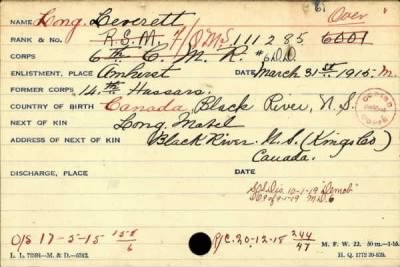 NAME Long, Leverett Over
RANK & No. R.S.M. T/QMS 111285 6001
CORPS 6th C. M. R. #6.D.D
ENLISTMENT, PLACE Amherst DATE March 31st 1915. M.
FORMER CORPS 14th Hussars.
COUNTRY OF BIRTH Canada, Black River, N.S.
NEXT OF KIN Long, Mabel
ADDRESS OF NEXT OF KIN Black River. N.S. (Kings Co)
Canada.
DISCHARGE, PLACE DATE
Sgt Dis 10-1-19 "Demob"
M.D. 6
O/S 17-5-15 158/6 R/C. 20-12-18 244/47 M. F. W. 22.
L. L. M. & D.
H. Q. 1772